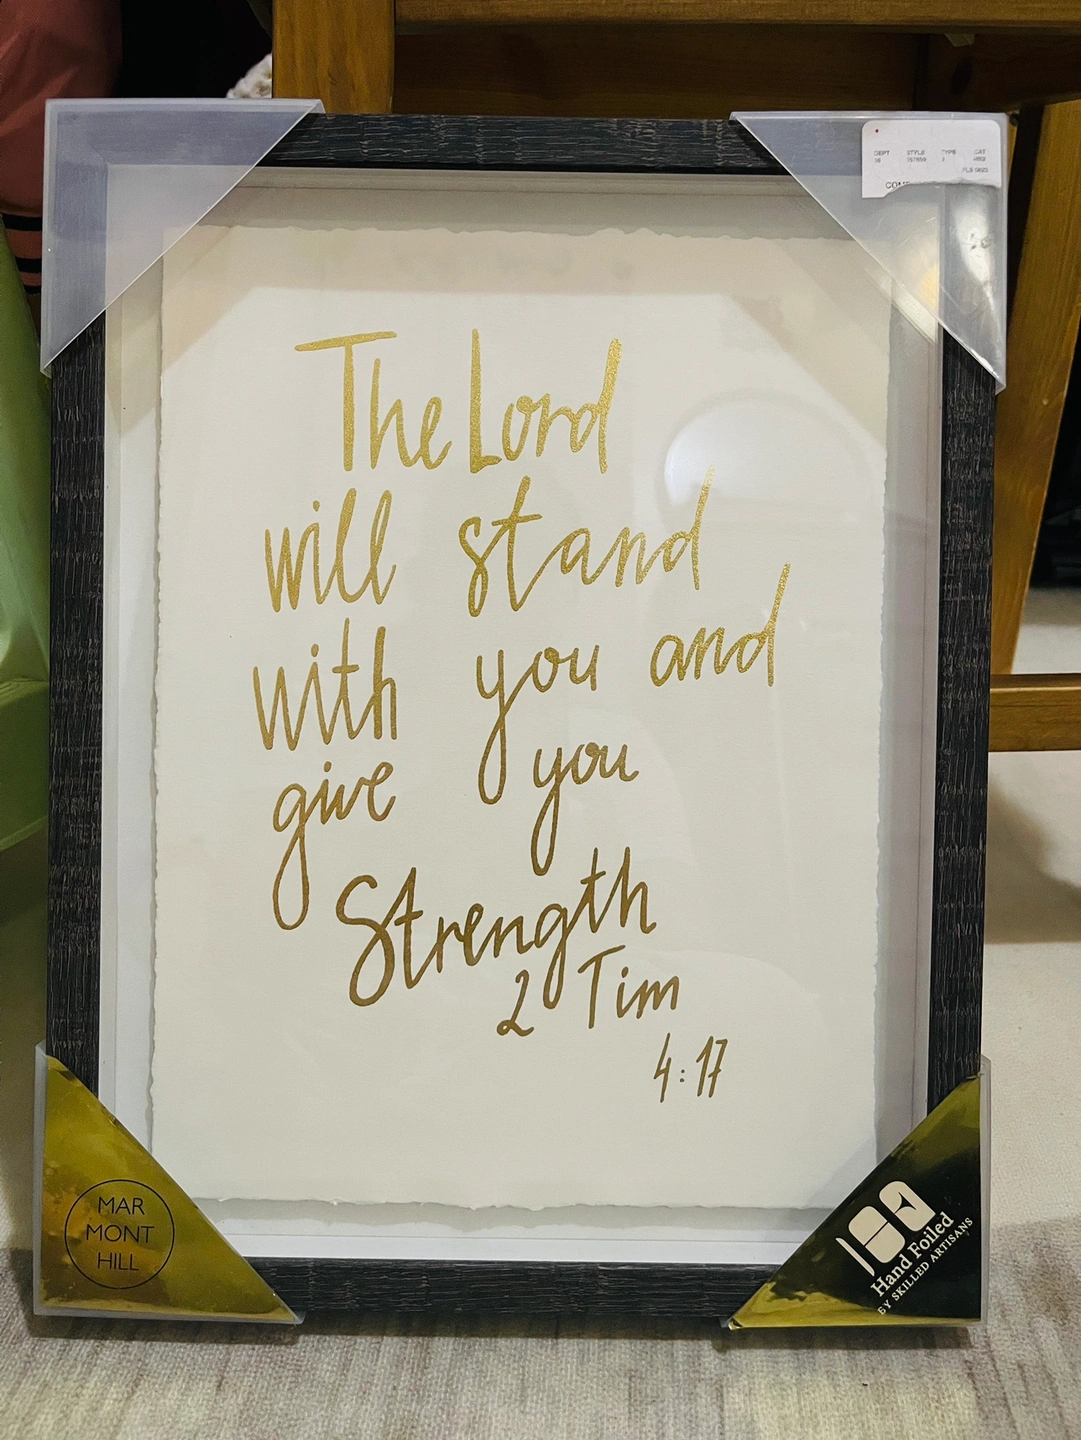 DEPT STYLE TYPE CAT
The Lord
will stand
with you and
give you
Strength
2 Tim
4:17
MAR
MONT
HILL
Hand Foiled
BY SKILLED ARTISANS